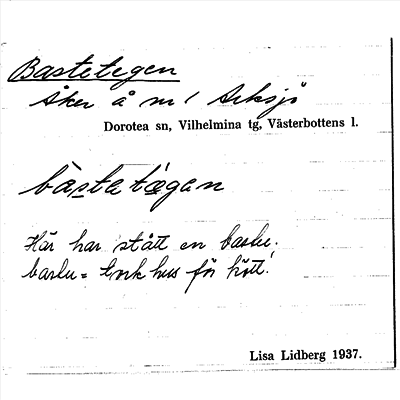 Bastetegen
Åker å nr 1 Arksjö
Dorotea sn, Vilhelmina tg, Västerbottens l.
bàstatǽgan
Här har stått en bastu.
bastu = torkhus för kött.
Lisa Lidberg 1937.